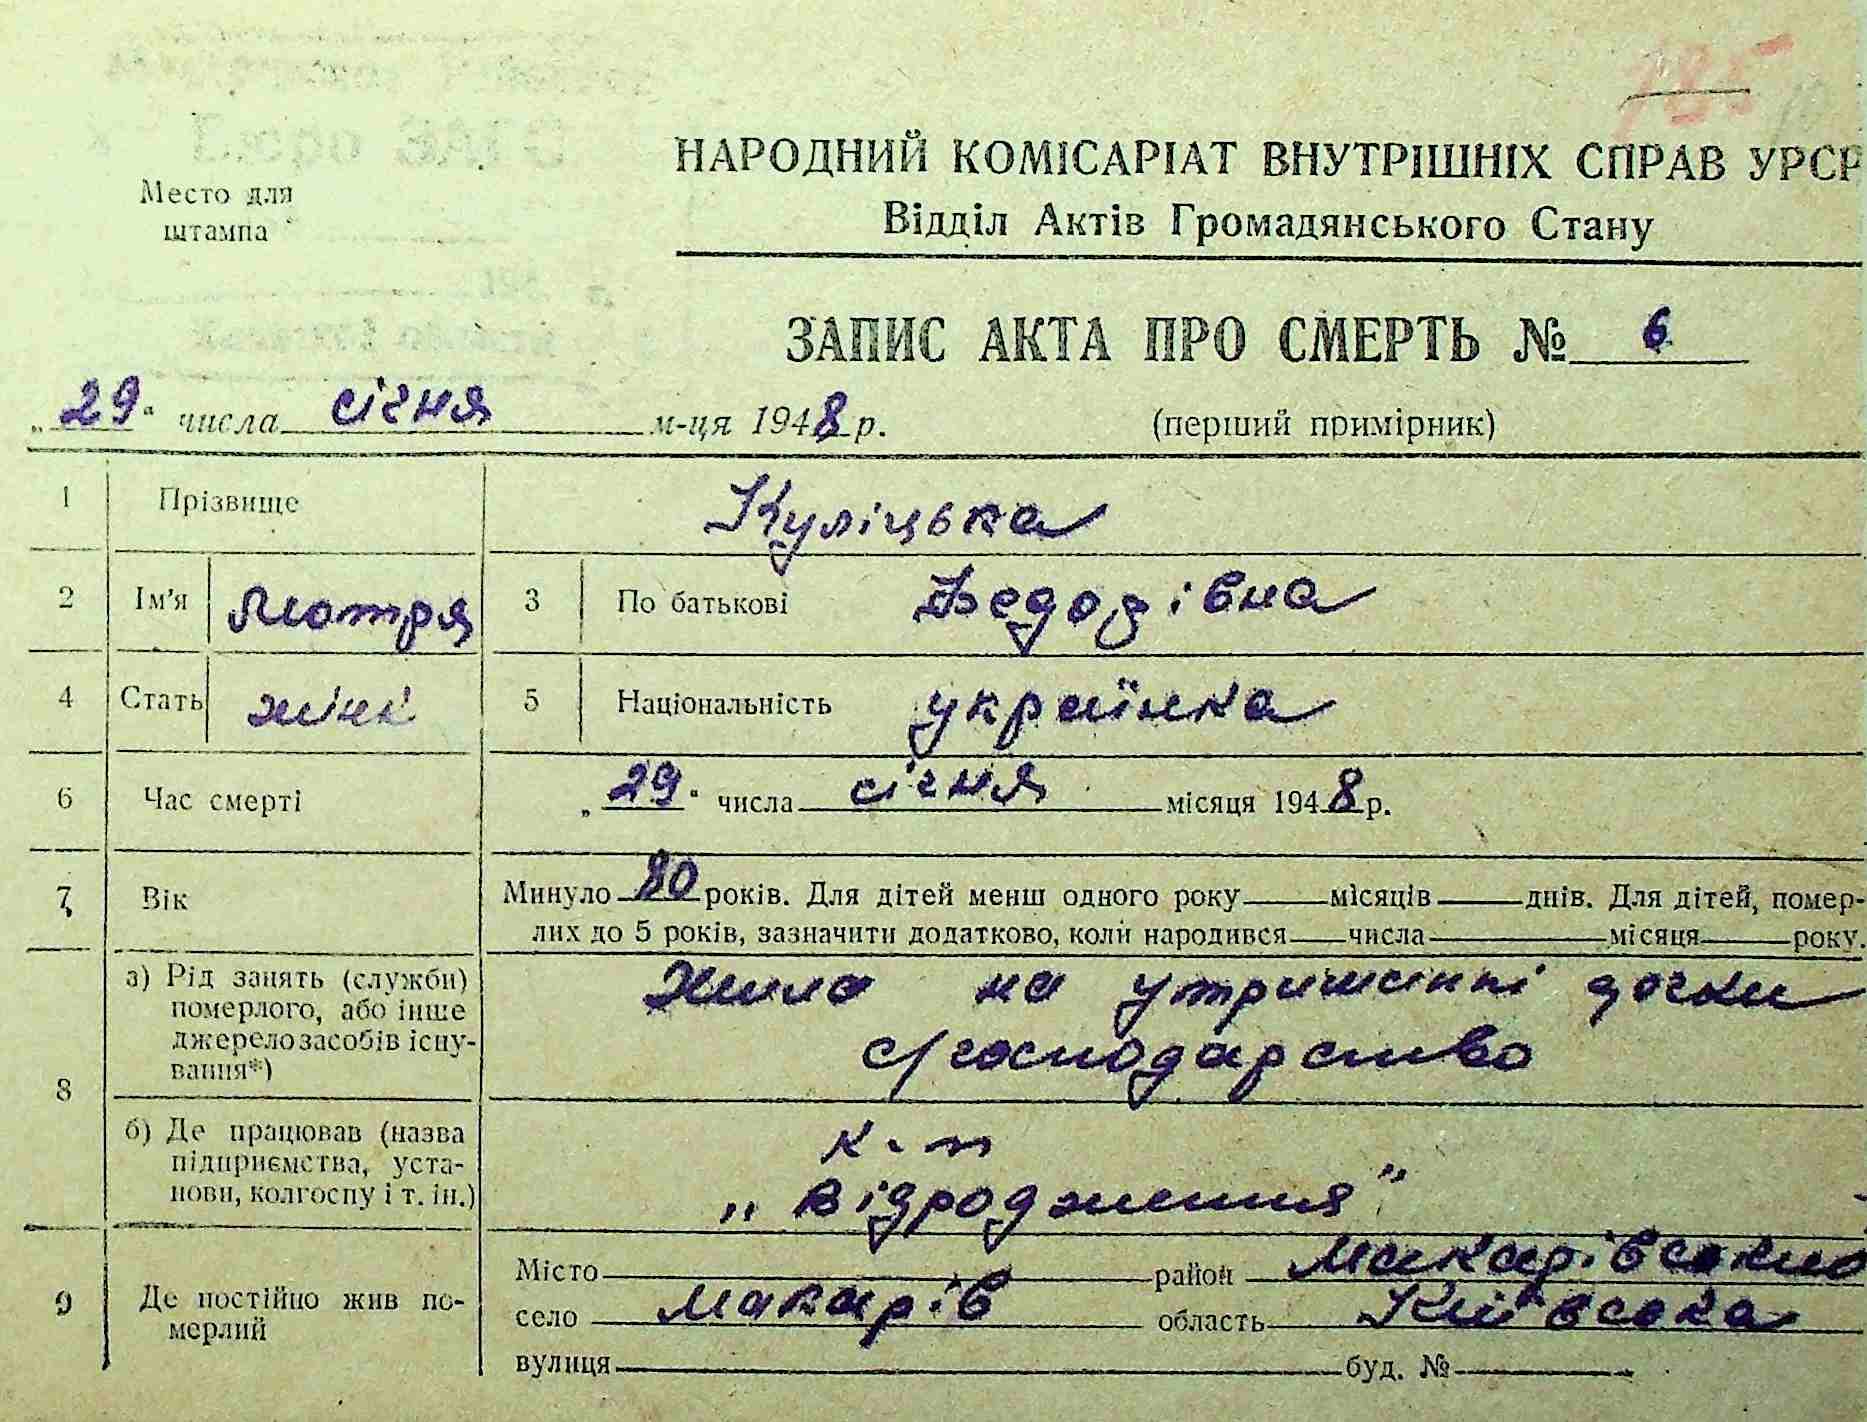 185
Место для
штампа
НАРОДНИЙ КОМІСАРІАТ ВНУТРІШНІХ СПРАВ УРСР
Відділ Актів Громадянського Стану
ЗАПИС АКТА ПРО СМЕРТЬ № 6
„29“ числа січня м-ця 1948 р. (перший примірник)
1 Прізвище Куліцька
2 Ім'я Мотря 3 По батькові Федозівна
4 Стать жінк 5 Національність українка
6 Час смерті „29“ числа січня місяця 1948 р.
7 Вік Минуло 80 років. Для дітей менш одного року місяців днів. Для дітей, помер-
лих до 5 років, зазначити додатково, коли народився числа місяця року.
8 а) Рід занять (служби) померлого, або інше джерело засобів існу-вання*) Жила на утриманні дочки
с/господарство
б) Де працював (назва підприємства, уста-нови, колгоспу і т. ін.) к-п
„Відродження"
9 Де постійно жив по-мерлий Місто район Макарівського
село Макарів область Київська
вулиця буд. №